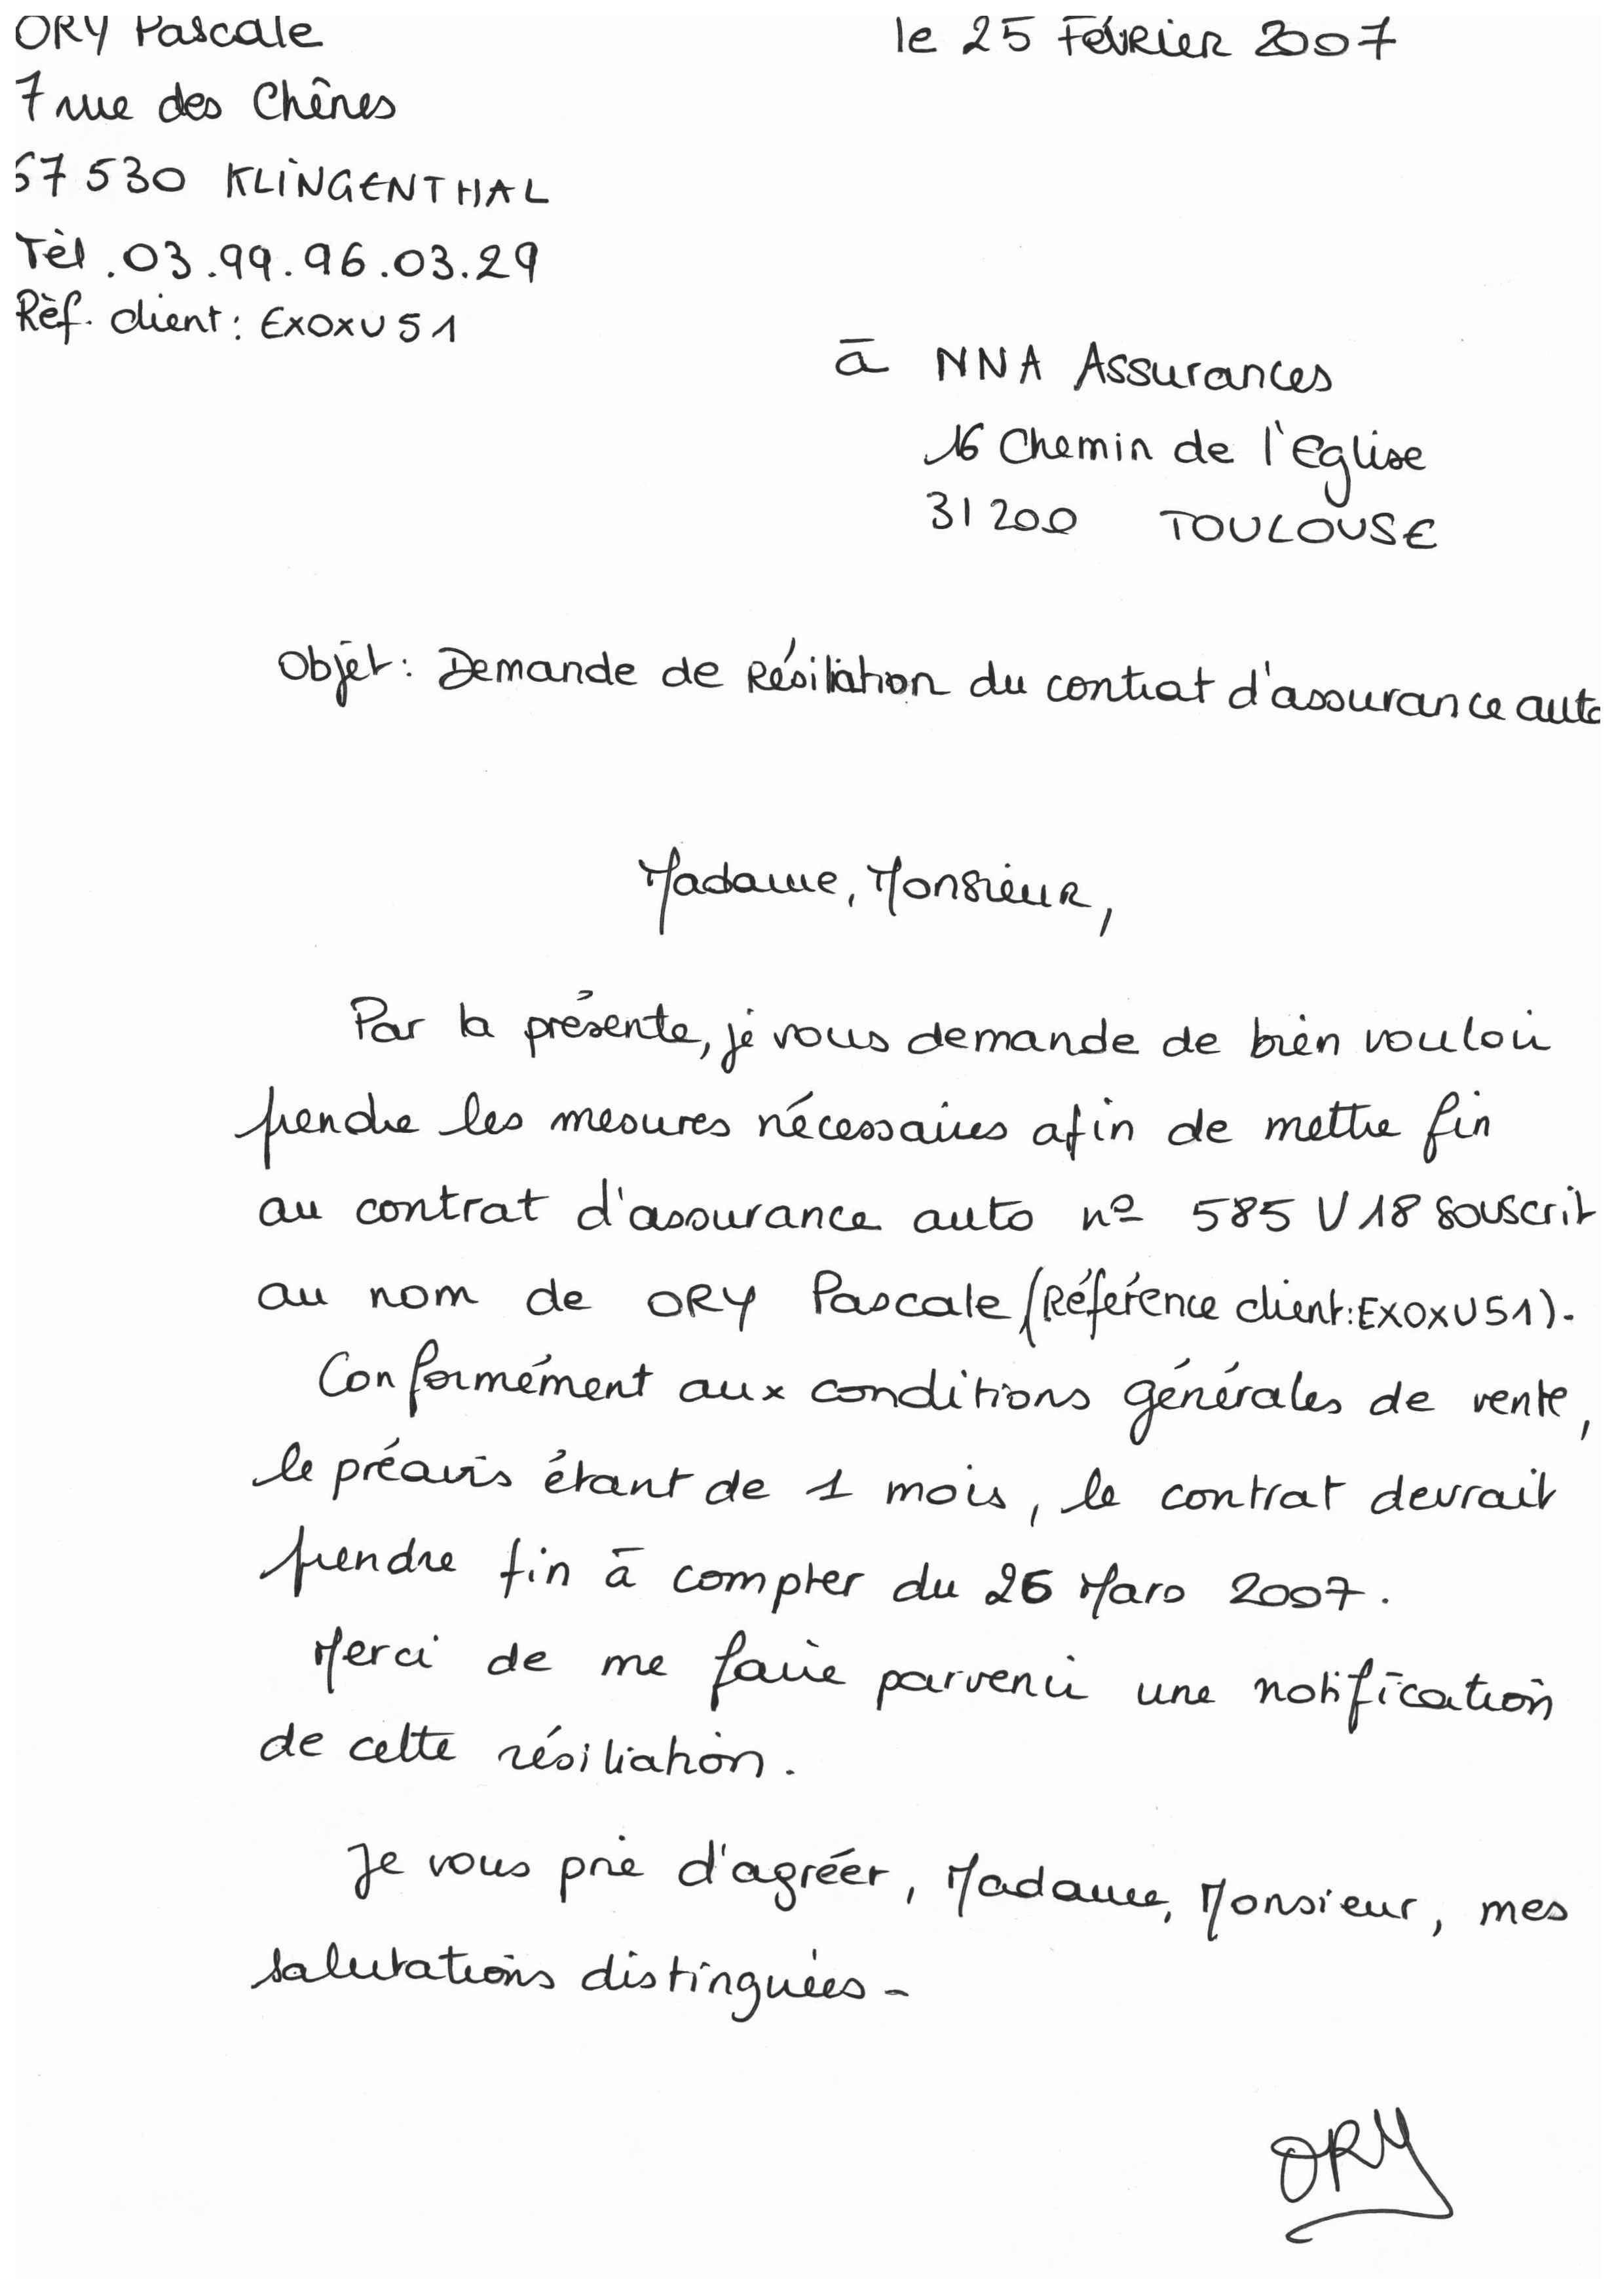 ORY Pascale
le 25 Février 2007
7 rue des Chênes
67 530 KLINGENTHAL
Tèl. 03.99.96.03.29
Rèf. client : EXOXU51
à NNA Assurances
16 Chemin de l'Eglise
31 200 TOULOUSE
Objet : Demande de Résiliation du contrat d'assurance auto
Madame, Monsieur,
Par la présente, je vous demande de bien vouloir
prendre les mesures nécessaires afin de mettre fin
au contrat d'assurance auto n° 585 V 18 souscrit
au nom de ORY Pascale (Référence client : EXOXU51).
Conformément aux conditions générales de vente,
le préavis étant de 1 mois, le contrat devrait
prendre fin à compter du 26 Mars 2007.
Merci de me faire parvenir une notification
de cette résiliation.
Je vous prie d'agréer, Madame, Monsieur, mes
salutations distinguées -
ORY